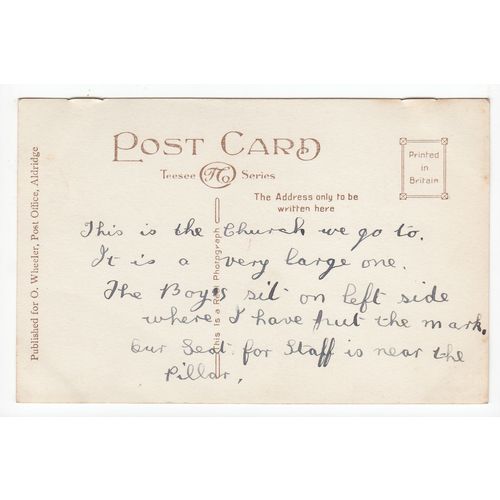 POST CARD
Teesee TC Series
Printed
in
Britain
The Address only to be
written here
Published for O. Wheeler, Post Office, Aldridge
This is a Real Photpgraph
This is the Church we go to.
It is a very large one.
The Boys sit on left side
where I have put the mark.
Our Seat for Staff is near the
Pillar.